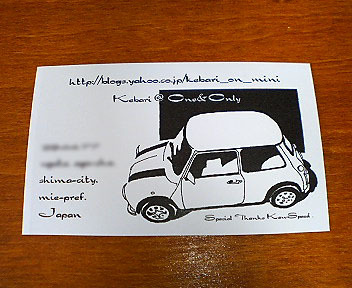 http://blogs.yahoo.co.jp/kebari_on_mini
Kebari @ One&Only
shima-city.
mie-pref.
Japan
Special Thanks Kow-Speed.